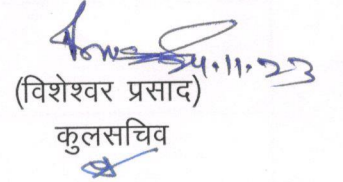 24.11.23
(विशेश्वर प्रसाद)
कुलसचिव